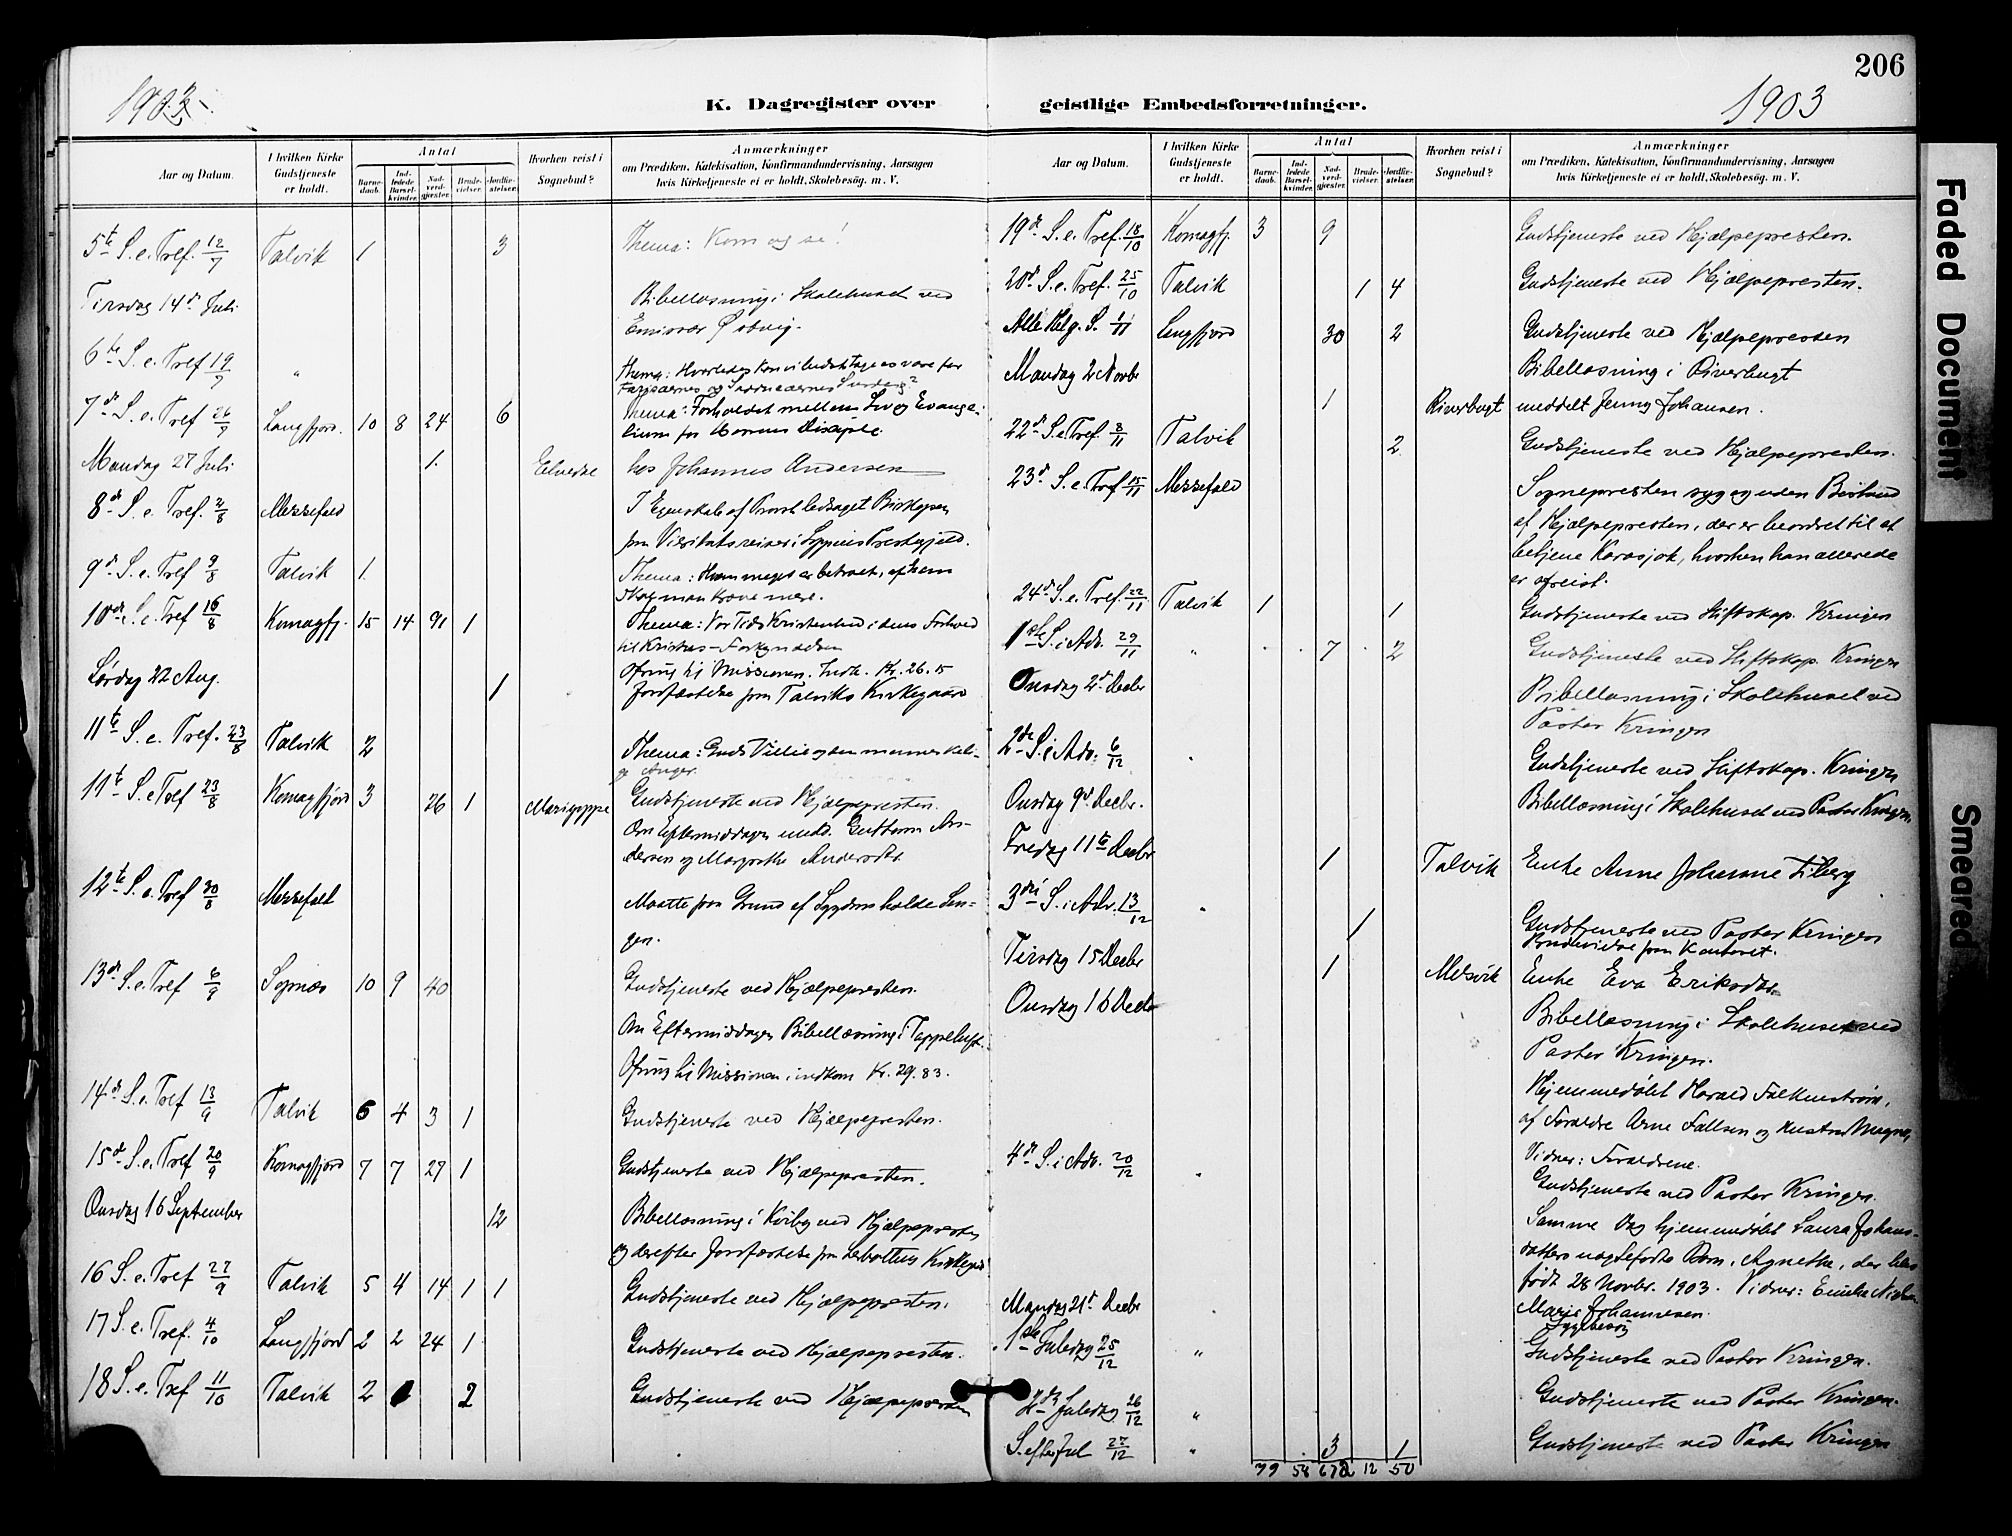 206
1903
K. Dagregister over
geistlige Embedsforretninger.
1903
Aar og Datum.
I hvilken Kirke Gudstjeneste er holdt.
Antal
Barnedaab.
Indledede Barselkvinder.
Nadverdgjæster.
Brudevielser.
Jordfæstelser.
Hvorhen reist i Sognebud?
Anmærkninger
om Prædiken, Katekisation, Konfirmandundervisning, Aarsagen
hvis Kirketjeneste ei er holdt, Skolebesøg. m. V.
5te S. e. Tref. 12/7 Talvik 1 3 Thema: Kom og se!
Tirsdag 14de Juli Bibellæsning i Skolehuset ved
Emissær
6te S. e. Tref 19/7 "
7de S. e. Tref 26/7 Langfjord. 10 8 24 6 Thema: Forholdet mellem Lov og Evange-
lium for Herrens Disciple.
Mandag 27 Juli 1. hos Johannes Andersen
8de S. e. Tref. 2/8 I Egenskab af Provst ledsaget Biskopen
9de S. e. Tref 9/8 Talvik 1. Thema: Hvem meget er betroet, af ham
skal man kræve mere.
10de S. e. Tref 16/8 Komagfj. 15 14 91 1 Thema: Vor Tids Kristenhed i dens Forhold
Ofring til Missionen. Indk. Kr. 26.15
Lørdag 22 Aug. 1 Jordfæstelse paa Talviks Kirkegaard
11te S. e. Tref. 23/8 Talvik 2 Thema: Guds Villie og den menneskeli-
ge Anger.
11te S. e Tref 23/8 Komagfjord 3 26 1 Gudstjeneste ved Hjælpepresten.
Om Eftermiddagen
12te S. e. Tref 30/8 Maatte paa Grund af Sygdom holde Sen-
gen.
13de S. e. Tref 6/9 Sopnæs 10 9 40 Gudstjeneste ved Hjælpepresten.
Om Eftermiddagen Bibellæsning i Tappeluft.
Ofring til Missionen, indkom Kr. 29.83.
14de S. e. Tref 13/9 Talvik 6 4 3 1 Gudstjeneste ved Hjælpepresten.
15de S. e. Tref 20/9 Komagfjord 7 7 27 1 Gudstjeneste ved Hjælpepresten.
Onsdag 16 September 12 Bibellæsning i Kviby ved Hjælpepresten
og derefter Jordfæstelse paa
16 S. e. Tref 27/9 Talvik 5 4 14 1 1 Gudstjeneste ved Hjælpepresten.
17 S. e. Tref. 4/10 Langfjord 2 2 24 1 Gudstjeneste ved Hjælpepresten.
18 S. e. Tref 11/10 Talvik 2 2 Gudstjeneste ved Hjælpepresten
Aar og Datum.
I hvilken Kirke Gudstjeneste er holdt.
Antal
Barnedaab.
Indledede Barselkvinder.
Nadverdgjæster.
Brudevielser.
Jordfæstelser.
Hvorhen reist i Sognebud?
Anmærkninger
om Prædiken, Katekisation, Konfirmandundervisning, Aarsagen
hvis Kirketjeneste ei er holdt, Skolebesøg. m. V.
19de S. e. Tref. 18/10 Komagfj. 3 9 Gudstjeneste ved Hjælpepresten.
20de S. e. Tref. 25/10 Talvik 1 4 Gudstjeneste ved Hjælpepresten.
Alle Helg. S. 1/11 Langfjord 30 2 Gudstjeneste ved Hjælpepresten
Mandag 2 Novbr Bibellæsning i Riverbugt
1 Riverbugt meddelt Jenny Johansen.
22de S. e. Tref. 8/11 Talvik 2 Gudstjeneste ved Hjælpepresten.
23de S. e. Tref 15/11 Sognepresten syg og uden Bistand
af Hjælpepresten, der er beordret til at
betjene Karasjok, hvorhen han allerede
er afreist.
24de S. e. Tref. 22/11 Talvik 1 1 Gudstjeneste ved Stiftskap. Kringen
1ste S. i Adv. 29/11 " 7 2 Gudstjeneste ved Stiftskap. Kringen
Onsdag 2de Decbr Bibellæsning i Skolehuset ved
Pastor Kringen
2den S. i Adv. 6/12 " Gudstjeneste ved Stiftskap. Kringen
Onsdag 9de Decbr. Bibellæsning i Skolehuset ved Pastor Kringen.
Fredag 11te Decbr 1 Talvik Enke Anne Johanne
3die S. i Adv. 13/12 " 1 Gudstjeneste ved Pastor Kringen
Brudevielse paa Kontoret.
Tirsdag 15 Decbr 1 Melsvik Enke Eva Eriksdtr.
Onsdag 16 Decbr Bibellæsning i Skolehuset ved
Pastor Kringen.
Hjemmedøbt Harald Falkenstrøm,
af Forældre Arne
Vidner: Forældrene.
4de S. i Adv. 20/12 " Gudstjeneste ved Pastor Kringen.
Samme Dag hjemmedøbt Laura Johans-
datters uægtefødte Barn, Agnethe, der blev
født 28 Novbr. 1903. Vidner:
Marie Johannesen.
Mandag 21de Decbr " Sygebesøg
1ste Juledag 25/12 " Gudstjeneste ved Pastor Kringen.
2den Juledag 26/12 " Gudstjeneste ved Pastor Kringen.
S. efter Jul 27/12 " 3 1 Gudstjeneste ved Pastor Kringen
79 58 672 12 50
Faded Document
Smeared